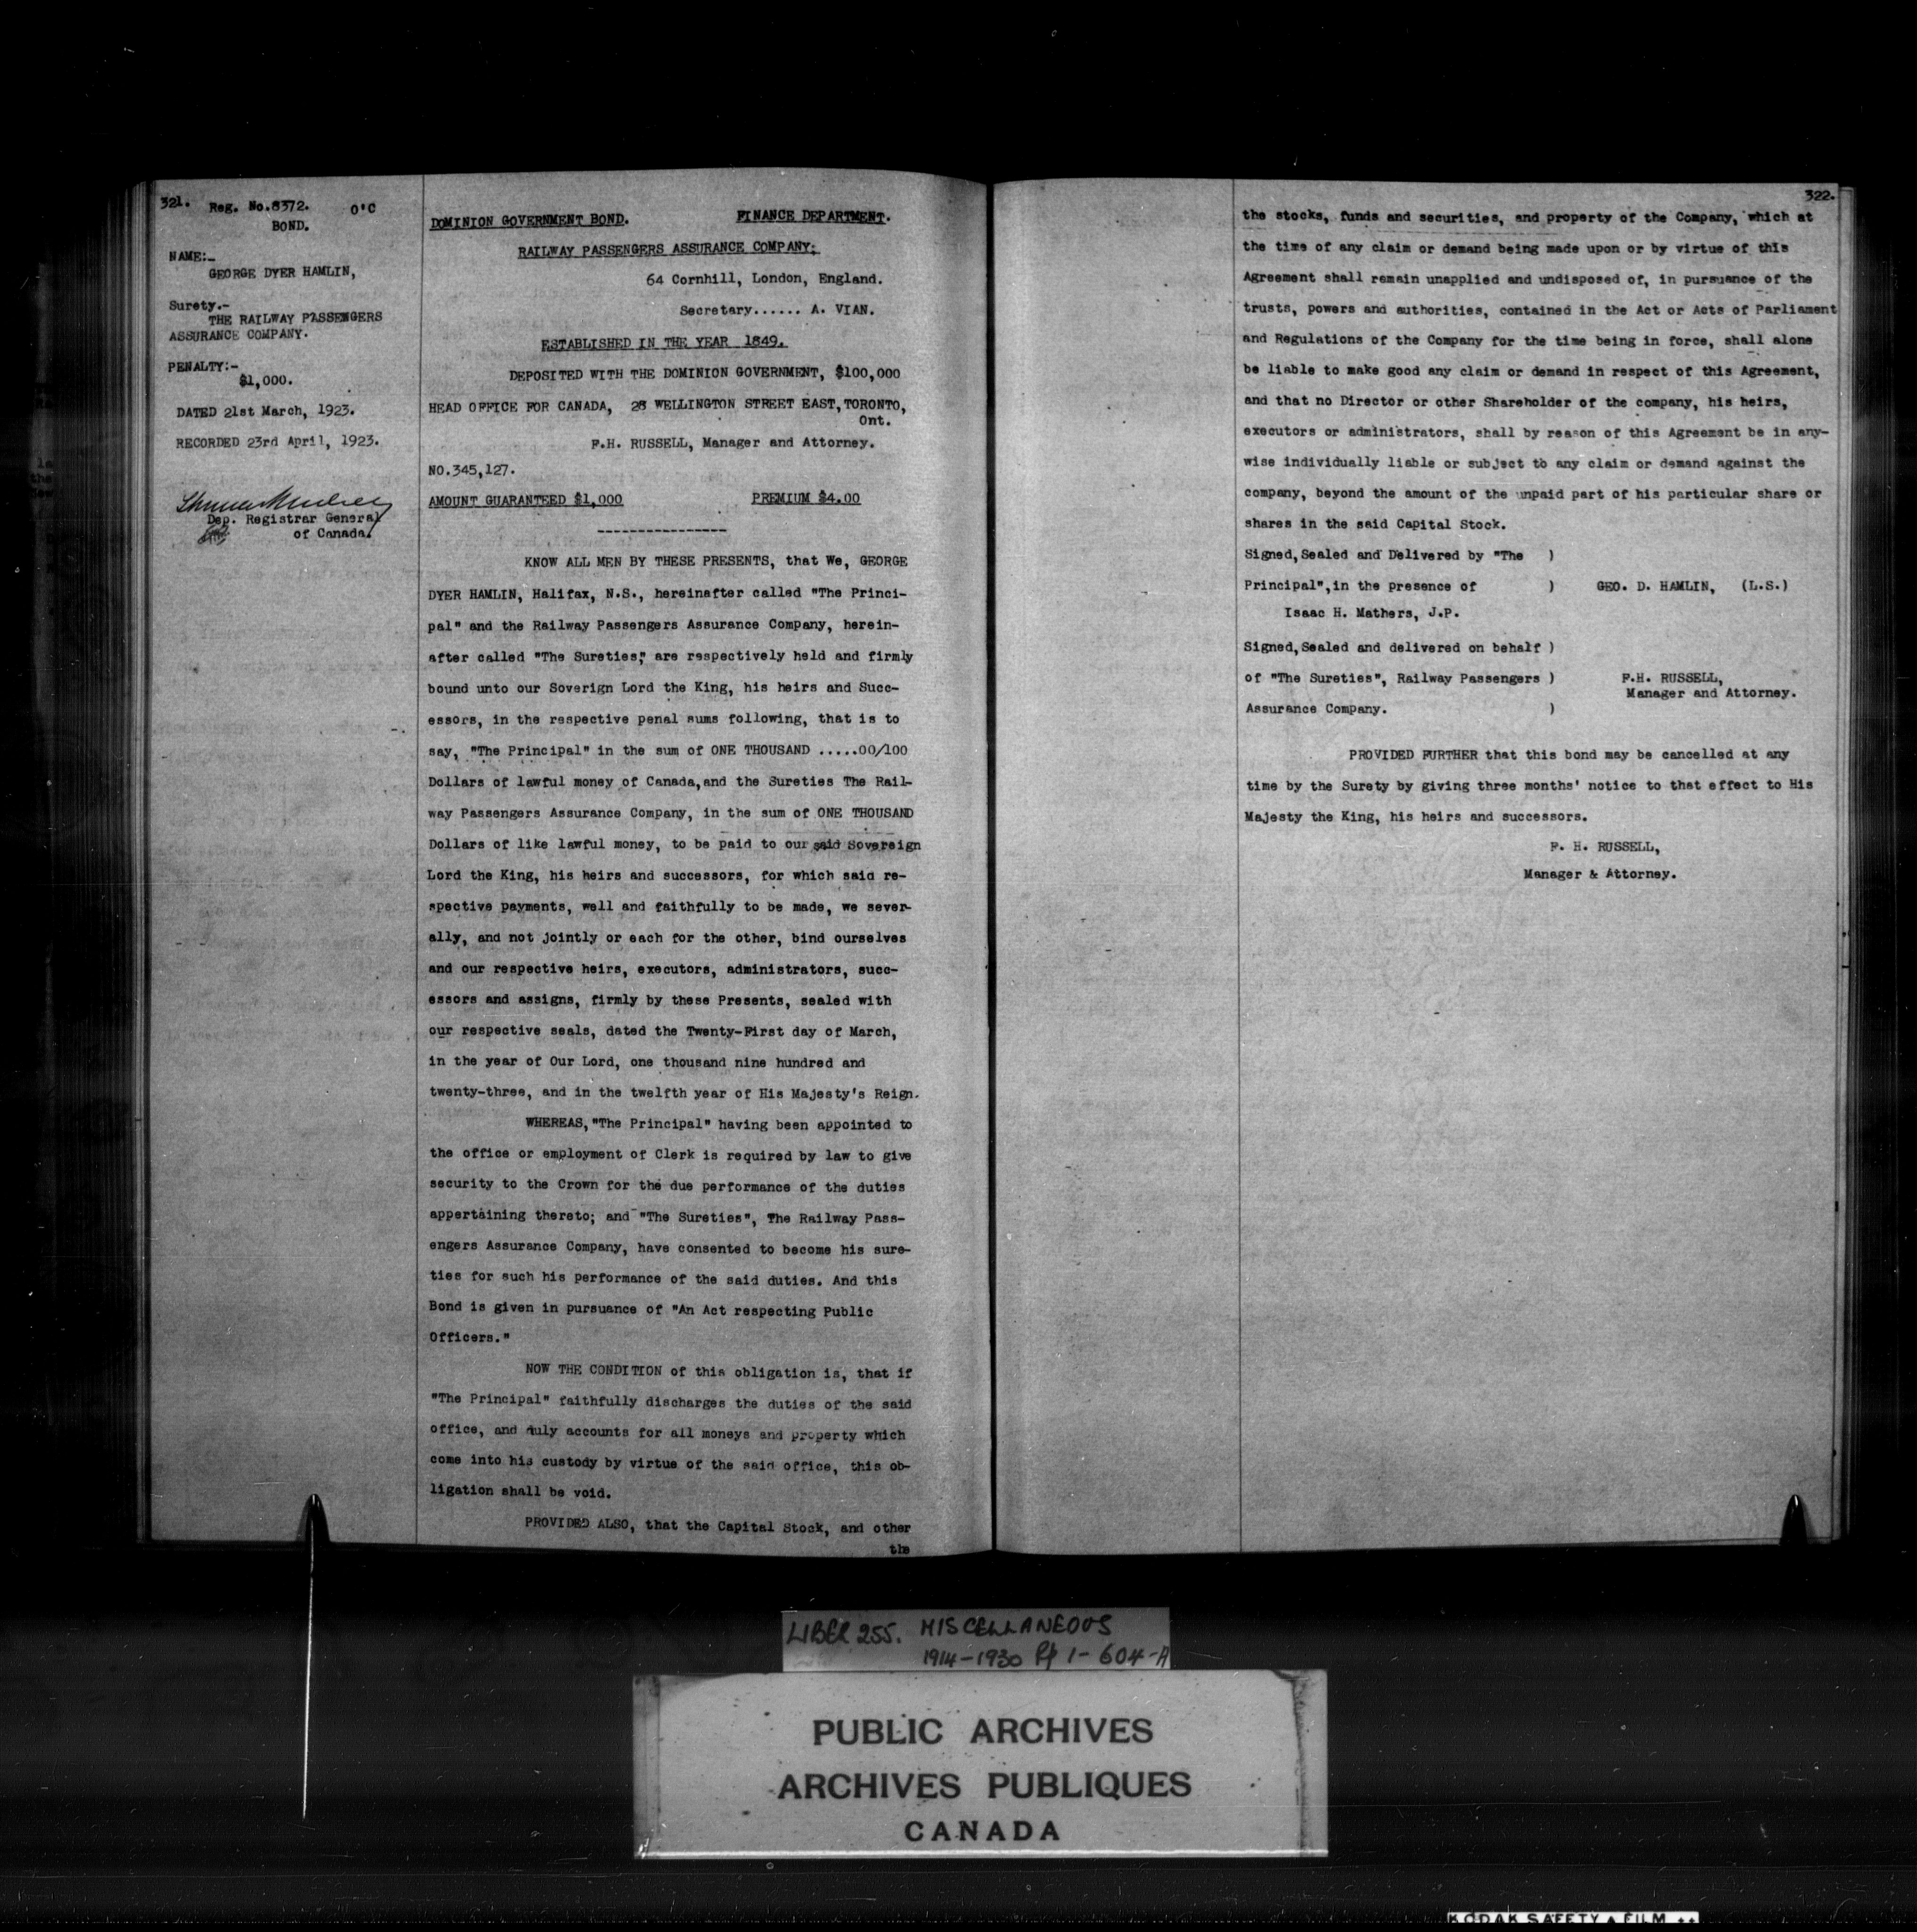 321. Reg. No.8372. O'C
BOND.
NAME:-
GEORGE DYER HAMLIN,
Surety.-
THE RAILWAY PASSENGERS
ASSURANCE COMPANY.
PENALTY:-
$1,000.
DATED 21st March, 1923.
RECORDED 23rd April, 1923.
Dep. Registrar General
of Canada.
DOMINION GOVERNMENT BOND. FINANCE DEPARTMENT.
RAILWAY PASSENGERS ASSURANCE COMPANY:
64 Cornhill, London, England.
Secretary...... A. VIAN.
ESTABLISHED IN THE YEAR 1849.
DEPOSITED WITH THE DOMINION GOVERNMENT, $100,000
HEAD OFFICE FOR CANADA, 28 WELLINGTON STREET EAST, TORONTO,
Ont.
F.H. RUSSELL, Manager and Attorney.
NO.345,127.
AMOUNT GUARANTEED $1,000 PREMIUM $4.00
----------------
KNOW ALL MEN BY THESE PRESENTS, that We, GEORGE
DYER HAMLIN, Halifax, N.S., hereinafter called "The Princi-
pal" and the Railway Passengers Assurance Company, herein-
after called "The Sureties," are respectively held and firmly
bound unto our Soverign Lord the King, his heirs and Succ-
essors, in the respective penal sums following, that is to
say, "The Principal" in the sum of ONE THOUSAND .....00/100
Dollars of lawful money of Canada,and the Sureties The Rail-
way Passengers Assurance Company, in the sum of ONE THOUSAND
Dollars of like lawful money, to be paid to our said Sovereign
Lord the King, his heirs and successors, for which said re-
spective payments, well and faithfully to be made, we sever-
ally, and not jointly or each for the other, bind ourselves
and our respective heirs, executors, administrators, succ-
essors and assigns, firmly by these Presents, sealed with
our respective seals, dated the Twenty-First day of March,
in the year of Our Lord, one thousand nine hundred and
twenty-three, and in the twelfth year of His Majesty's Reign.
WHEREAS,"The Principal" having been appointed to
the office or employment of Clerk is required by law to give
security to the Crown for the due performance of the duties
appertaining thereto; and "The Sureties", The Railway Pass-
engers Assurance Company, have consented to become his sure-
ties for such his performance of the said duties. And this
Bond is given in pursuance of "An Act respecting Public
Officers."
NOW THE CONDITION of this obligation is, that if
"The Principal" faithfully discharges the duties of the said
office, and duly accounts for all moneys and property which
come into his custody by virtue of the said office, this ob-
ligation shall be void.
PROVIDED ALSO, that the Capital Stock, and other
the
322.
the stocks, funds and securities, and property of the Company, which at
the time of any claim or demand being made upon or by virtue of this
Agreement shall remain unapplied and undisposed of, in pursuance of the
trusts, powers and authorities, contained in the Act or Acts of Parliament
and Regulations of the Company for the time being in force, shall alone
be liable to make good any claim or demand in respect of this Agreement,
and that no Director or other Shareholder of the company, his heirs,
executors or administrators, shall by reason of this Agreement be in any-
wise individually liable or subject to any claim or demand against the
company, beyond the amount of the unpaid part of his particular share or
shares in the said Capital Stock.
Signed,Sealed and Delivered by "The )
Principal",in the presence of ) GEO. D. HAMLIN, (L.S.)
Isaac H. Mathers, J.P.
Signed,Sealed and delivered on behalf )
of "The Sureties", Railway Passengers ) F.H. RUSSELL,
Manager and Attorney.
Assurance Company. )
PROVIDED FURTHER that this bond may be cancelled at any
time by the Surety by giving three months' notice to that effect to His
Majesty the King, his heirs and successors.
F. H. RUSSELL,
Manager & Attorney.
LIBER 255. MISCELLANEOUS
1914-1930 Pp 1-604-A
PUBLIC ARCHIVES
ARCHIVES PUBLIQUES
CANADA
KODAK SAFETY FILM